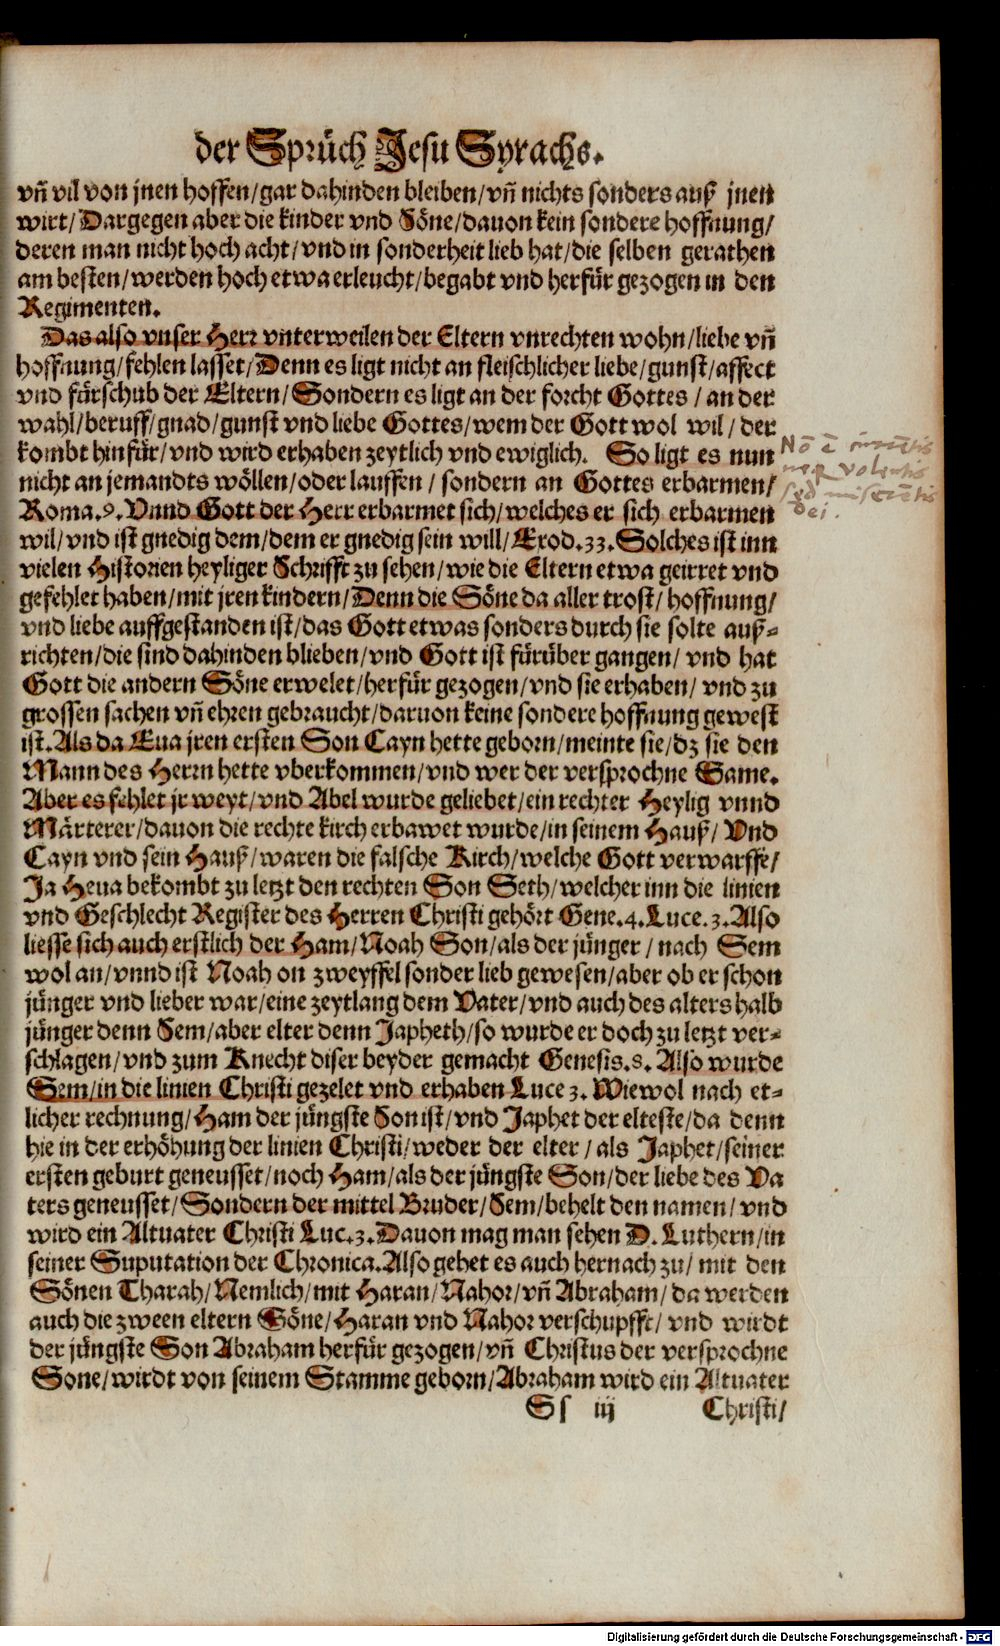 der Sprüch Jesu Syrachs.
vñ vil von jnen hoffen/gar dahinden bleiben/vñ nichts sonders auß jnen
wirt/Dargegen aber die kinder vnd Söne/dauon kein sondere hoffnung/
deren man nicht hoch acht/vnd in sonderheit lieb hat/die selben gerathen
am besten/werden hoch etwa erleucht/begabt vnd herfür gezogen in den
Regimenten.
Das also vnser Herr vnterweilen der Eltern vnrechten wohn/liebe vñ
hoffnung/fehlen lasset/Denn es ligt nicht an fleischlicher liebe/gunst/affect
vnd fürschub der Eltern/Sondern es ligt an der forcht Gottes/an der
wahl/beruff/gnad/gunst vnd liebe Gottes/wem der Gott wol wil/der
kombt hinfür/vnd wird erhaben zeytlich vnd ewiglich. So ligt es nun
nicht an jemandts wöllen/oder lauffen/sondern an Gottes erbarmen/
Roma.9.Vnnd Gott der Herr erbarmet sich/welches er sich erbarmen
wil/vnd ist gnedig dem/dem er gnedig sein will/Exod.33.Solches ist inn
vielen Historien heyliger Schrifft zu sehen/wie die Eltern etwa geirret vnd
gefehlet haben/mit jren kindern/Denn die Söne da aller trost/hoffnung/
vnd liebe auffgestanden ist/das Gott etwas sonders durch sie solte auß-
richten/die sind dahinden blieben/vnd Gott ist fürüber gangen/vnd hat
Gott die andern Söne erwelet/herfür gezogen/vnd sie erhaben/vnd zu
grossen sachen vñ ehren gebraucht/daruon keine sondere hoffnung gewest
ist.Als da Eua jren ersten Son Cayn hette geborn/meinte sie/dz sie den
Mann des Herrn hette vberkommen/vnd wer der versprochne Same.
Aber es fehlet jr weyt/vnd Abel wurde geliebet/ein rechter Heylig vnnd
Märterer/dauon die rechte kirch erbawet wurde/in seinem Hauß/Vnd
Cayn vnd sein Hauß/waren die falsche Kirch/welche Gott verwarffe/
Ja Heua bekombt zu letzt den rechten Son Seth/welcher inn die linien
vnd Geschlecht Register des Herren Christi gehört Gene.4.Luce.3.Also
liesse sich auch erstlich der Ham/Noah Son/als der jünger/nach Sem
wol an/vnnd ist Noah on zweyffel sonder lieb gewesen/aber ob er schon
jünger vnd lieber war/eine zeytlang dem Vater/vnd auch des alters halb
jünger denn Sem/aber elter denn Japheth/so wurde er doch zu letzt ver-
schlagen/vnd zum Knecht diser beyder gemacht Genesis.8.Also wurde
Sem/in die linien Christi gezelet vnd erhaben Luce 3. Wiewol nach et-
licher rechnung/Ham der jüngste Son ist/vnd Japhet der elteste/da denn
hie in der erhöhung der linien Christi/weder der elter/als Japhet/seiner
ersten geburt geneusset/noch Ham/als der jüngste Son/der liebe des Va
ters geneusset/Sondern der mittel Bruder/Sem/behelt den namen/vnd
wird ein Altuater Christi Luc.3.Dauon mag man sehen D. Luthern/in
seiner Suputation der Chronica.Also gehet es auch hernach zu/mit den
Sönen Tharah/Nemlich/mit Haran/Nahor/vñ Abraham/da werden
auch die zween eltern Söne/Haran vnd Nahor verschupfft/vnd wirdt
der jüngste Son Abraham herfür gezogen/vñ Christus der versprochne
Sone/wirdt von seinem Stamme geborn/Abraham wird ein Altuater
Ss iij Christi/
Nō ē currētis
neq volentis
sed miserētis
dei.
Digitalisierung gefördert durch die Deutsche Forschungsgemeinschaft - DFG